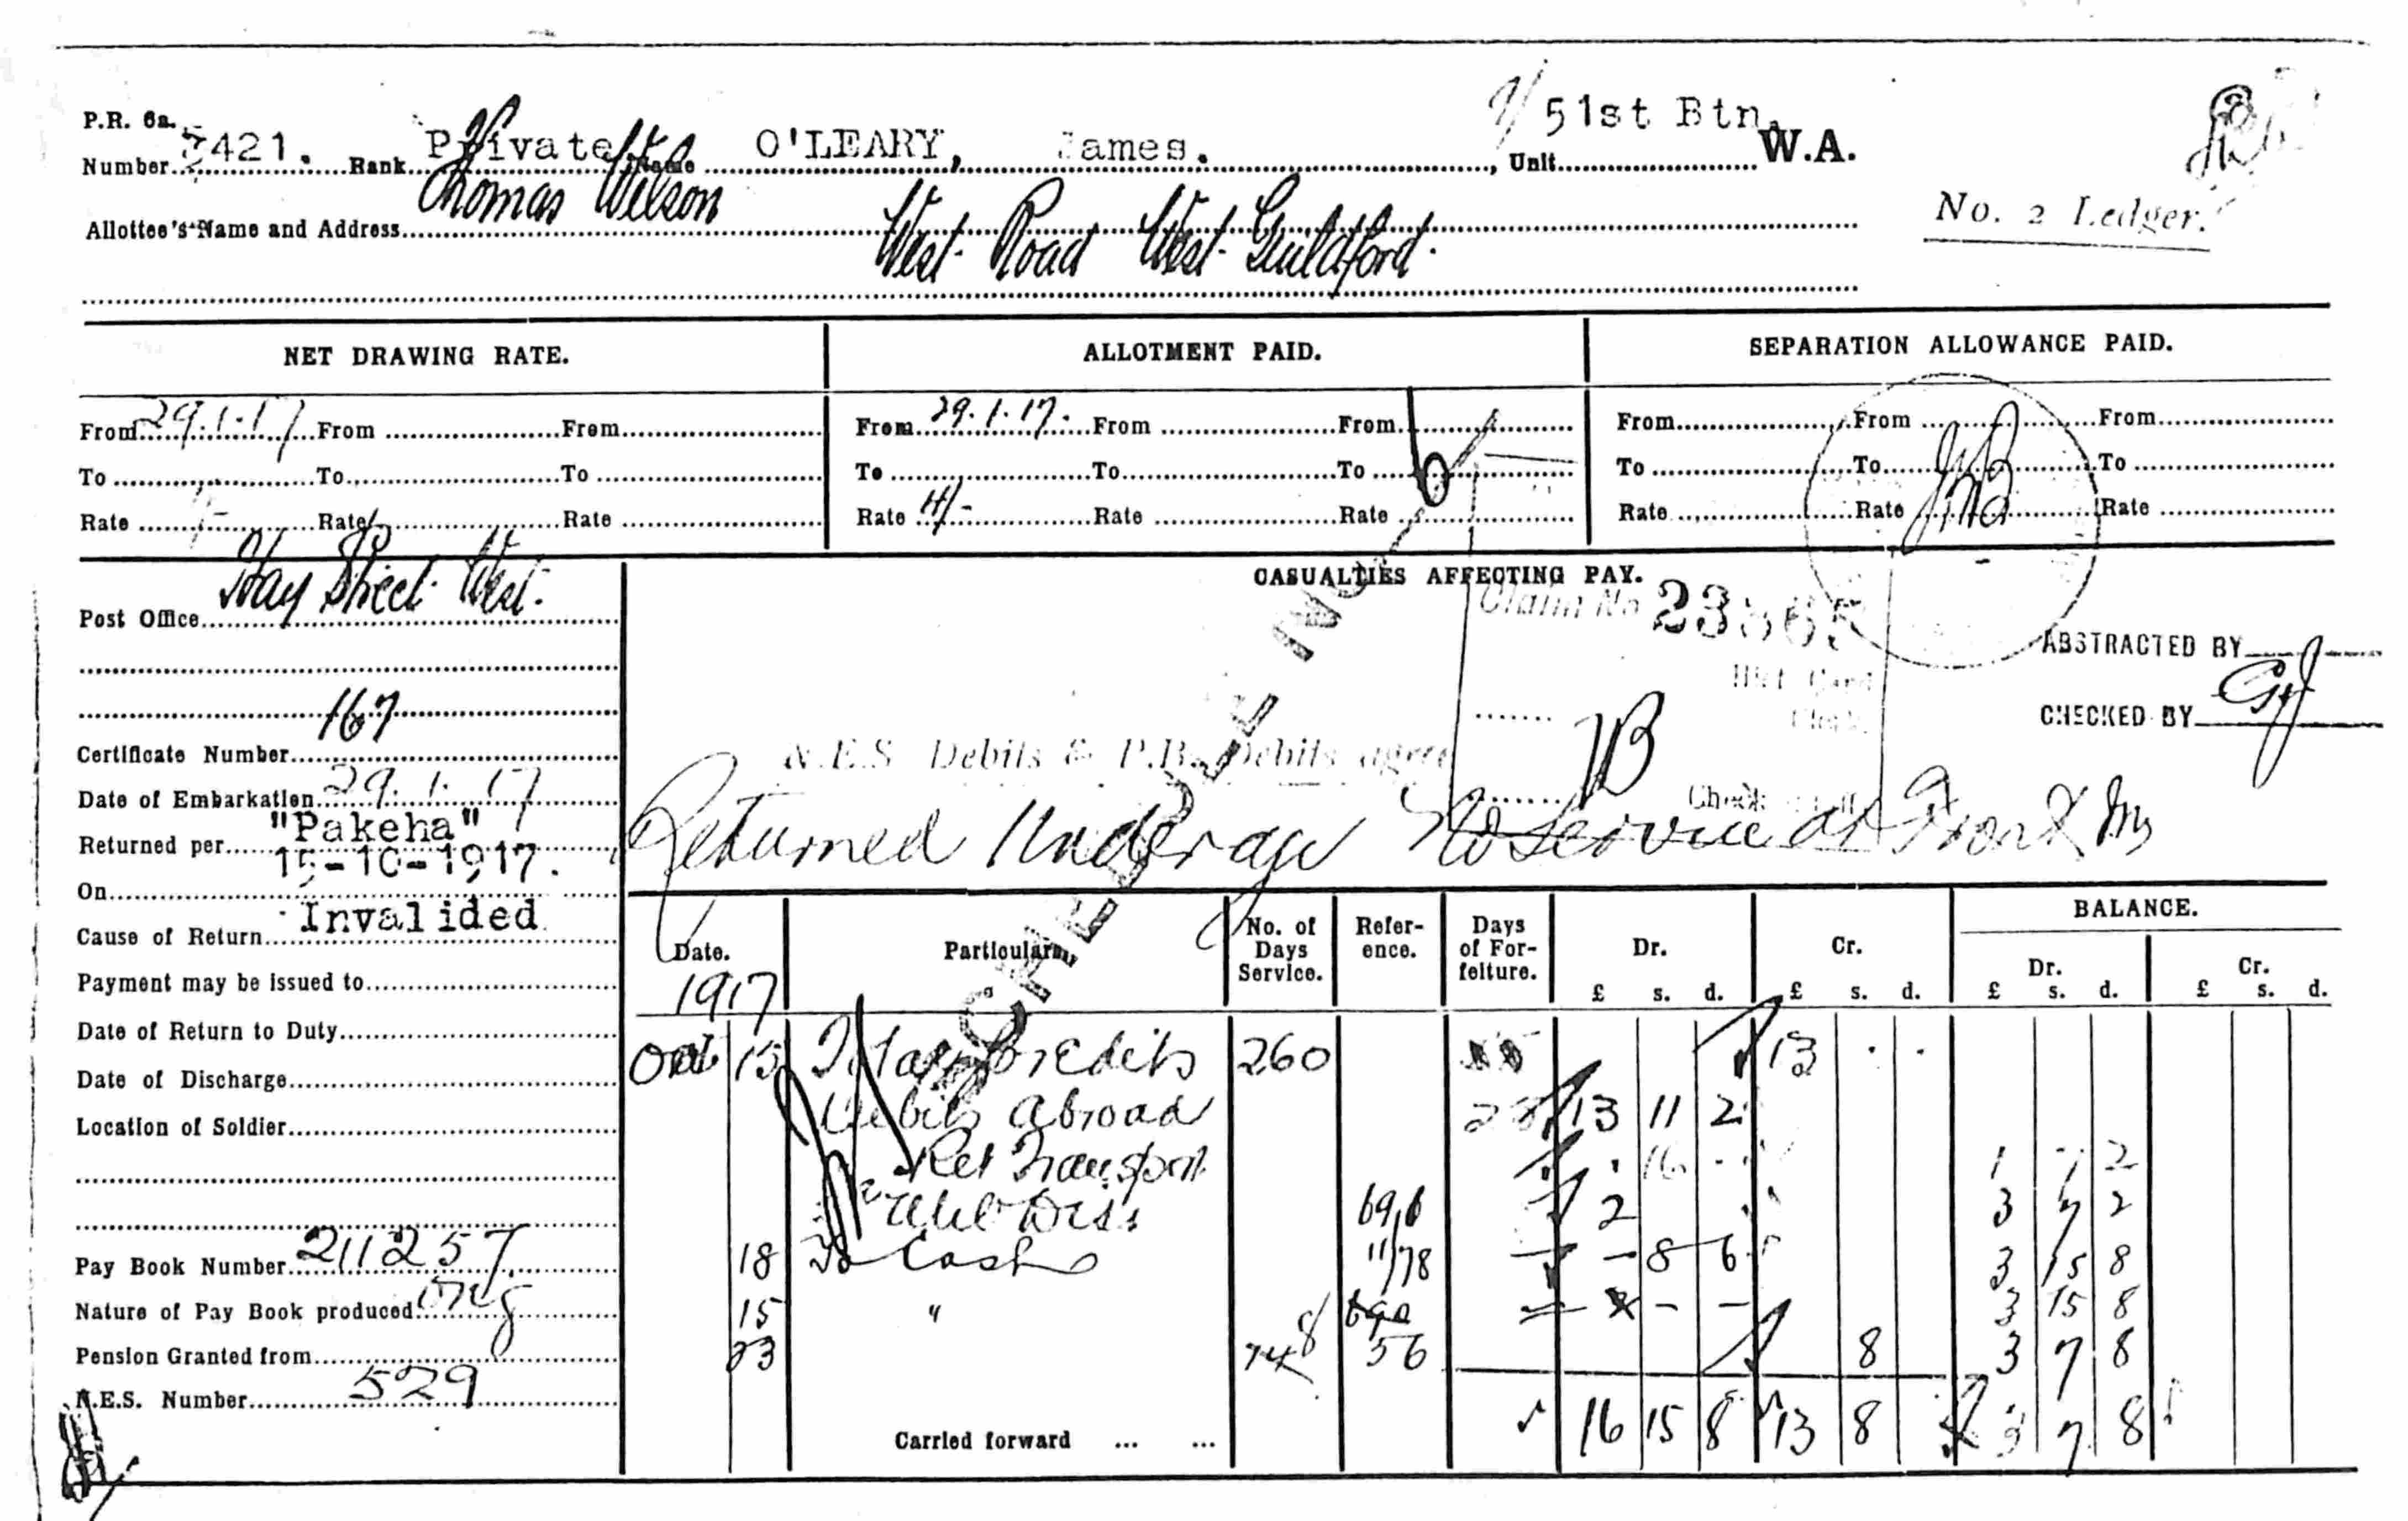 P.R. 6a.
7/51st Btn.
Number 421. Rank Private Name O'LEARY, James. , Unit W.A.
Allottee's Name and Address Thomas Wilson
West Road West Guildford.
No. 2 Ledger.
NET DRAWING RATE. ALLOTMENT PAID. SEPARATION ALLOWANCE PAID.
From 29.1.17 From From From 29.1.17. From From From From From
To To To To To To To To To
Rate Rate Rate Rate 4/- Rate Rate Rate Rate Rate
CASUALTIES AFFECTING PAY.
Claim No
Post Office Hay Street West.
ABSTRACTED BY
CHECKED BY
167
Certificate Number
N.E.S Debits & P.B. Debits agree
Date of Embarkation 29.1.17
Returned per "Pakeha"
Returned Underage No Service at Front
On 15-10-1917.
Cause of Return Invalided
Payment may be issued to
Date of Return to Duty
Date of Discharge
Location of Soldier
Pay Book Number 211257
Nature of Pay Book produced Orig
Pension Granted from
N.E.S. Number 529
Date. Particulars No. of Days Service. Reference. Days of Forfeiture. Dr. Cr. BALANCE.
Dr. Cr.
£ s. d. £ s. d. £ s. d. £ s. d.
1917
Oct 15 Total Credits 260 13 . .
Debits abroad 28 13 11 2
Ret Transport 16 1 7 2
2 3 7 2
18 To Cash 11/78 - 8 6 3 15 8
15 " 3 15 8
23 56 8 3 7 8
Carried forward ... ... 16 15 8 13 8 3 7 8